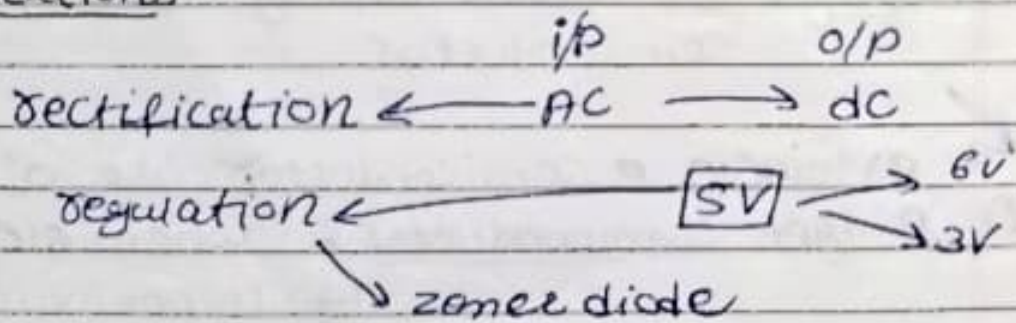 i/p o/p
rectification ← AC → dC
regulation ← 5V → 6V
→ 3V
→ zener diode